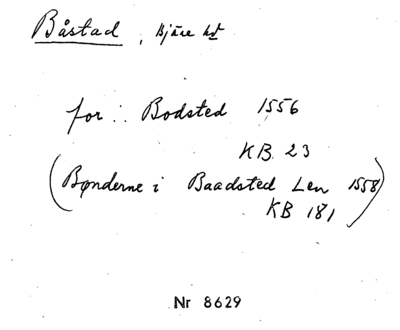 Båstad, Bjäre hd
for: Bodsted 1556
KB 23
(Bønderne i Baadsted Len 1558
KB 181)
Nr 8629